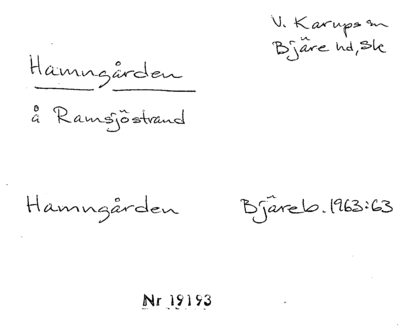 V. Karups sn
Bjäre hd, Sk
Hamngården
å Ramsjöstrand
Hamngården Bjäreb. 1963:63
Nr 19193